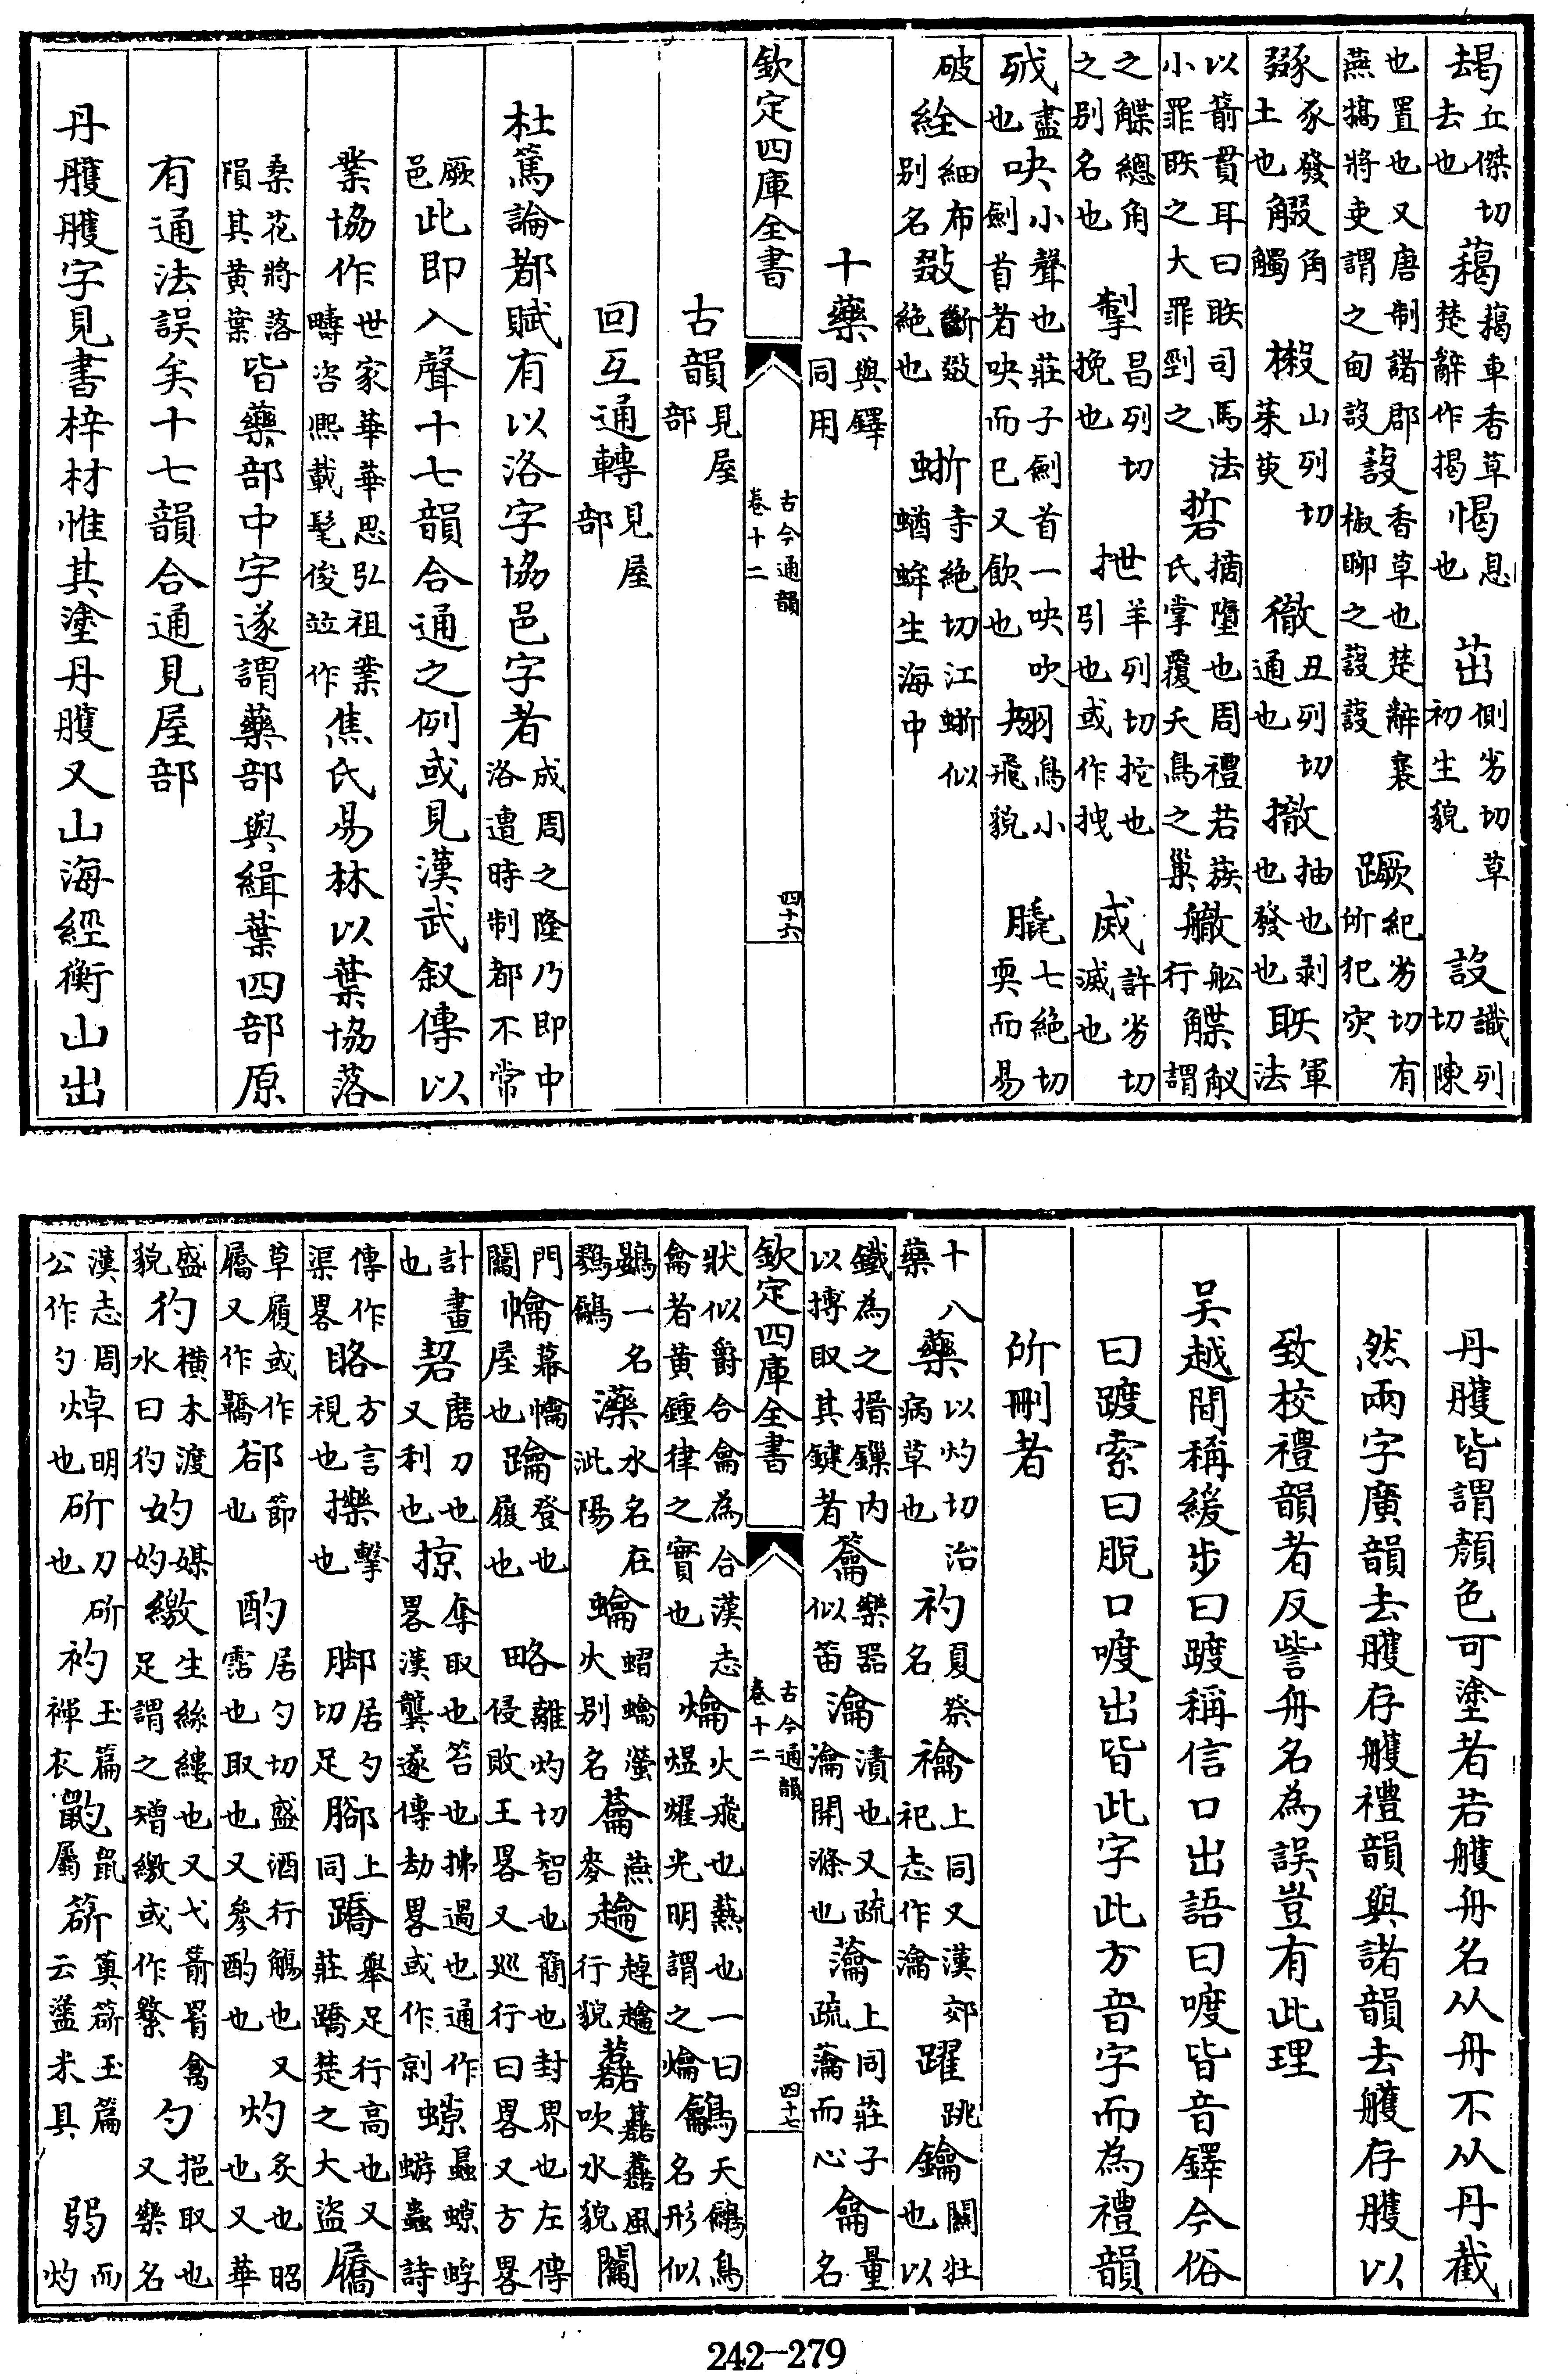 朅丘傑切去也藒藒車香草楚辭作揭愒息也茁側劣切草初生貌設識列切陳
也置也又唐制諸郡燕犒將吏謂之旬設蔎香草也楚辭㐮椒聊之蔎蔎蹶紀劣切有所犯突
豕發土也角觸樧山列切茱萸徹丑列切通也撤抽也剥也發也聅軍法
以箭貫耳曰聅司馬法小罪聅之大罪剄之硩摘墮也周禮若蔟氏掌覆夭鳥之巢船行䚢觓謂
之䚢總角之別名也掣昌列切挽也抴羊列切拕也引也或作拽烕許劣切滅也
盡也吷小聲也莊子劍首一吷吹劍首者吷而巳又飲也翐鳥小飛貌膬七絶切耎而易
破絟細布別名㪤斷㪤絶也蜥寺絶切江蜥似蝤蛑生海中
十藥與鐸同用
欽定四庫全書 古今通韻卷十二 四十六
古韻見屋部
回互通轉見屋部
杜篤論都賦有以洛字協邑字者成周之隆乃即中洛遭時制都不常
厥邑此即入聲十七韻合通之例或見漢武叙傳以
業協作世家華華思弘祖業疇咨熙載髦俊竝作焦氏易林以葉協落
桑花將落隕其黄葉皆藥部中字遂謂藥部與緝葉四部原
有通法誤矣十七韻合通見屋部
丹雘雘字見書梓材惟其塗丹雘又山海經衡山出
丹雘皆謂顏色可塗者若艧舟名从舟不从丹截
然兩字廣韻去雘存艧禮韻與諸韻去艧存雘以
致校禮韻者反訾舟名為誤豈有此理
吴越間稱緩步曰踱稱信口出語曰喥皆音鐸今俗
曰踱索曰脫口喥出皆此字此方音字而為禮韻
所刪者
十八藥藥以灼切治病草也礿夏祭名禴上同又漢郊祀志作瀹躍跳鑰關牡也以
鐵為之搢鏁内以搏取其鍵者籥樂器似笛瀹漬也又疏瀹開滌也㵸上同莊子疏㵸而心龠量名
欽定四庫全書 古今通韻卷十二 四十七
狀似爵合龠為合漢志龠者黄鍾律之實也爚火飛也爇也一曰煜爚光明謂之爚鸙天鸙鳥名形似
鷃一名鷚鸙濼水名在泚陽蠬蠬螢火別名蘥燕麥趯趠趯行貌風吹水貌闟
門闟幨幕幨屋也踚登也履也略離灼切智也簡也封界也左傳侵敗王畧又巡行曰畧又方畧
計畫也㓶磨刀也又利也掠奪取也笞也拂過也通作畧漢龔遂傳劫畧或作剠螈䗁螈蜉蝣蟲詩
傳作渠畧䀩方言視也擽擊也腳居勺切足腳上同蹻舉足行高也又莊蹻楚之大盜屩
草履或作屩又作鞽卻節也酌居勺切盛酒行觴也又霑也取也又參酌也灼炙也昭也又華
盛貌彴横木渡水曰彴妁媒妁繳生絲縷也又弋箭罥禽足謂之矰繳或作繁勺挹取也又樂名
漢志周公作勺焯明也斫刀斫也袀玉篇襌衣鼩鼠屬䇮䉛䇮玉篇云盪米具弱而灼
242-279